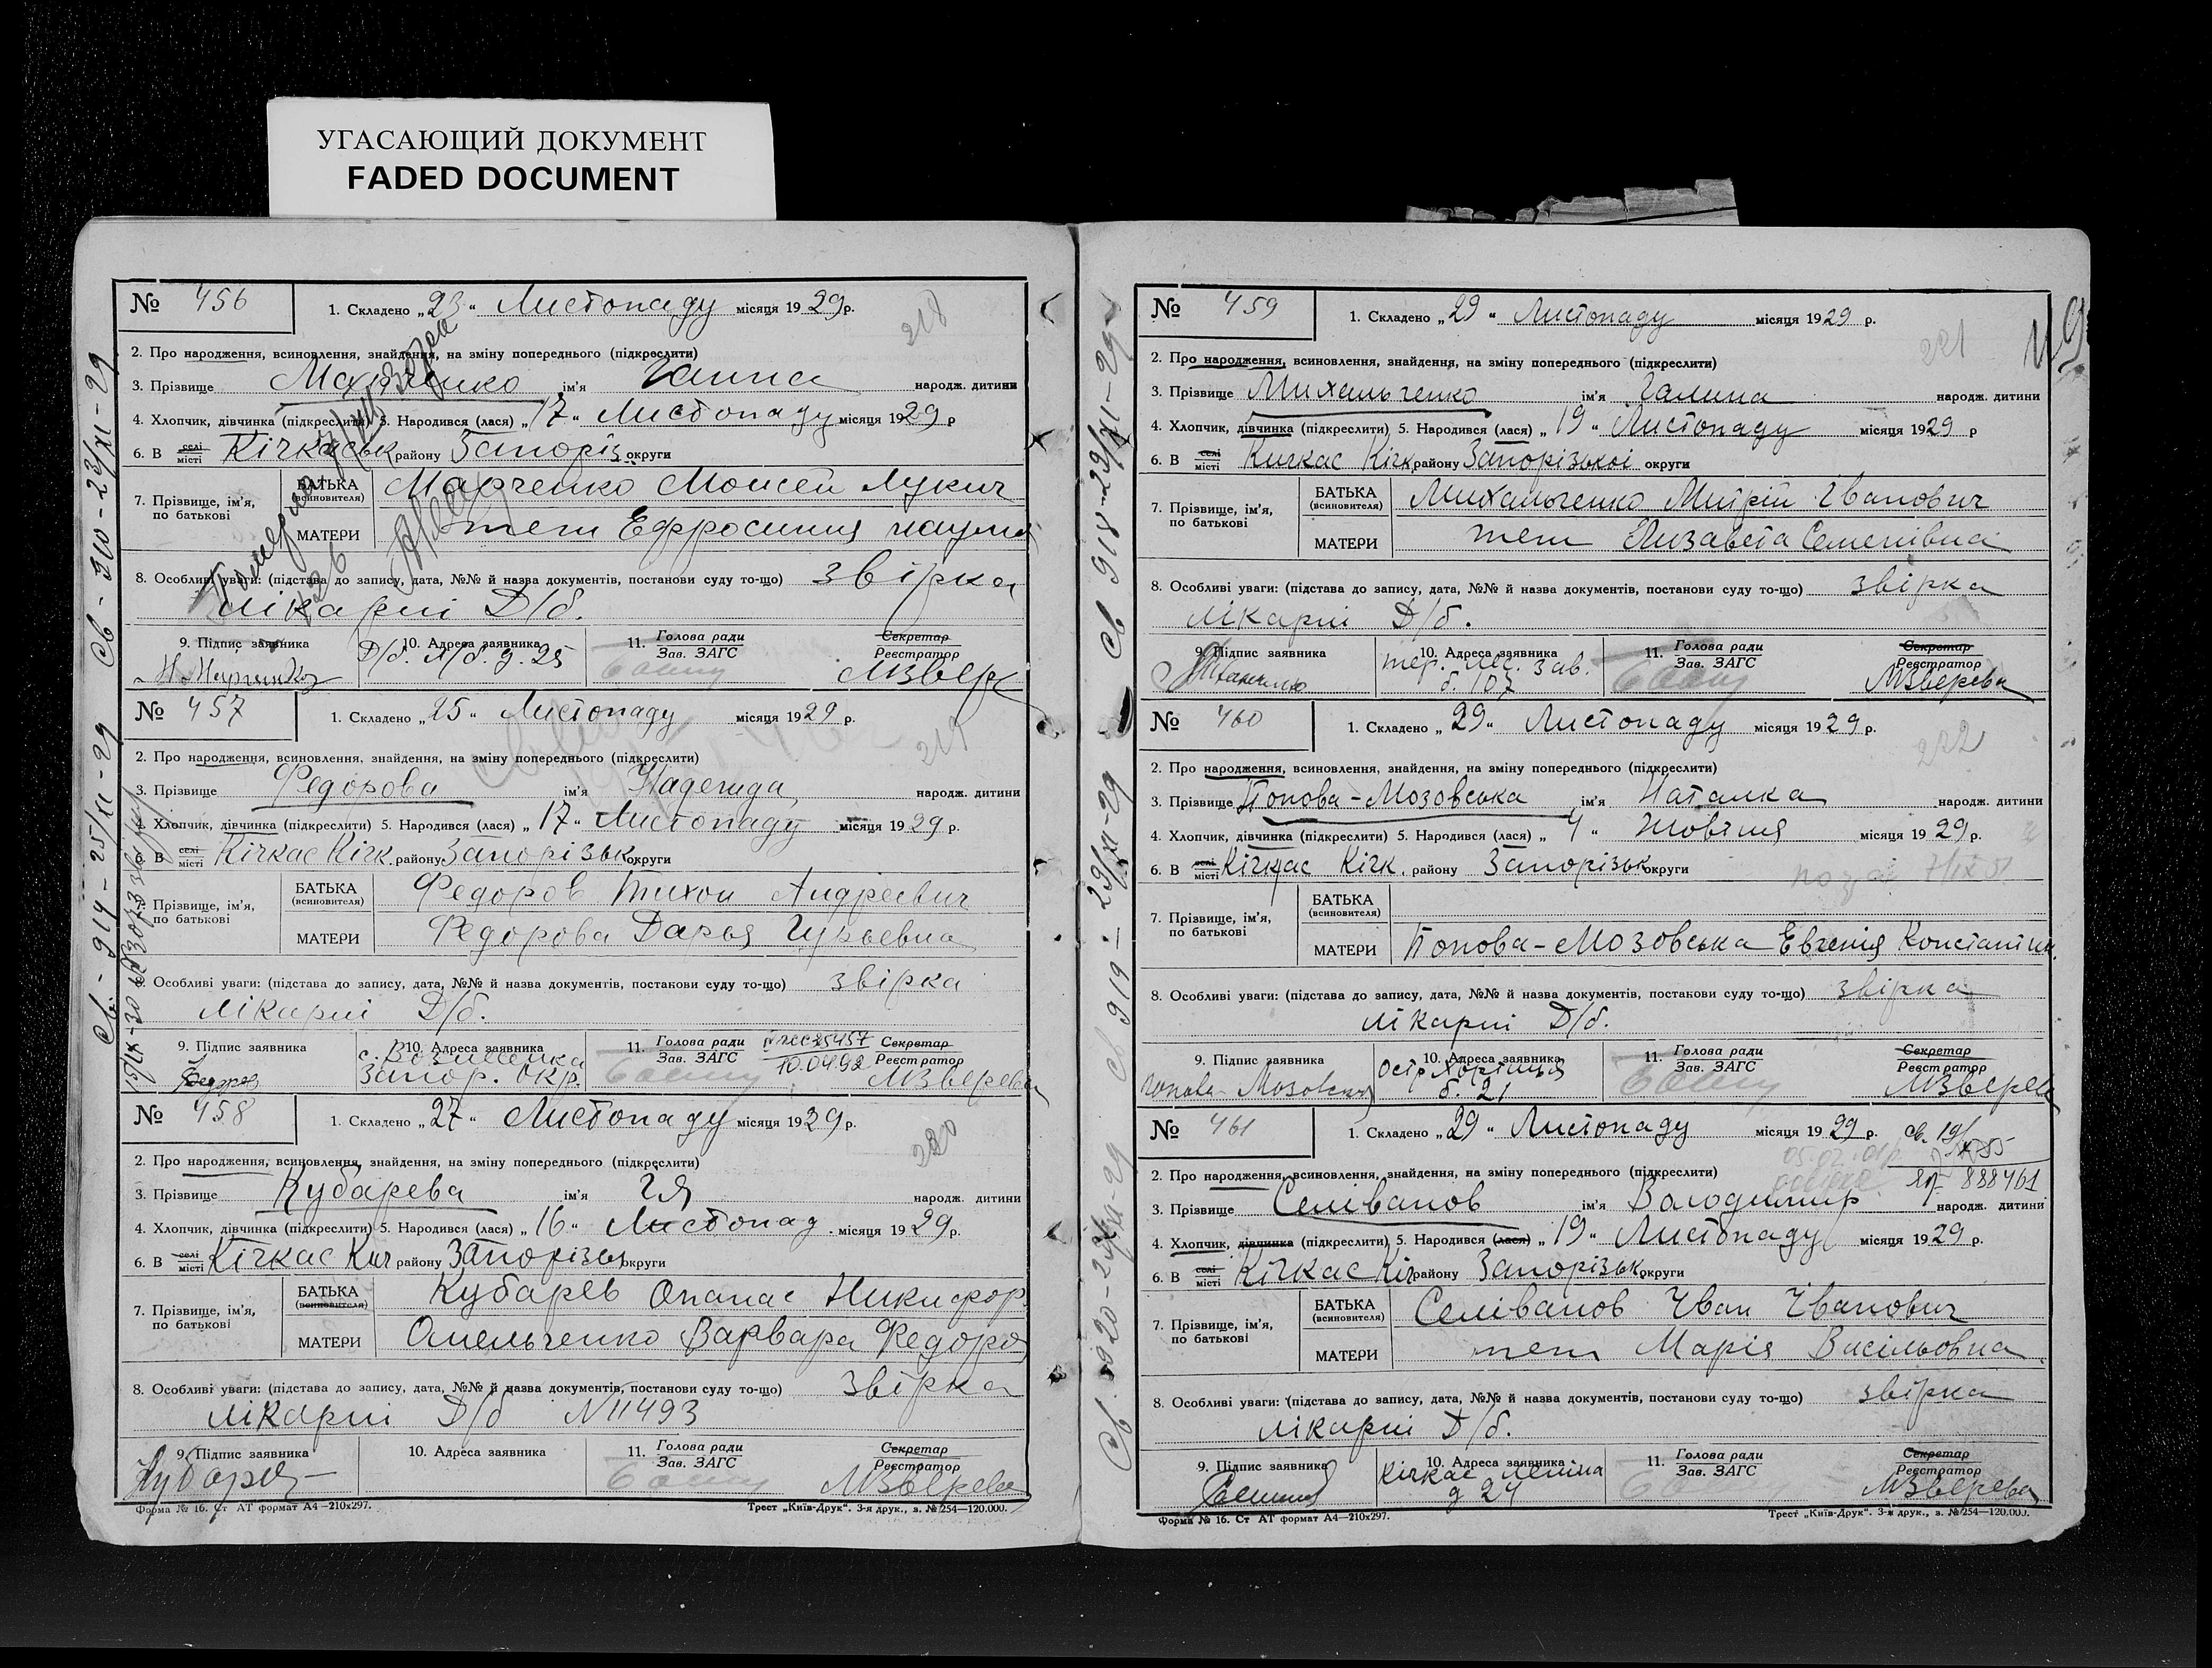 УГАСАЮЩИЙ ДОКУМЕНТ
FADED DOCUMENT
№ 456
1. Складено „23“ Листопаду місяця 1929 р.
218
2. Про народження, всиновлення, знайдення, на зміну попереднього (підкреслити)
3. Прізвище Марченко ім'я Ганна народж. дитини
4. Хлопчик, дівчинка (підкреслити) 5. Народився (лася) „17“ Листопаду місяця 1929 р
6. В селі місті Кічкаськ району Запоріз. округи
7. Прізвище, ім'я, по батькові
БАТЬКА (всиновителя) Марченко Мойсей Лукич
МАТЕРИ теж Ефросиния наумов
8. Особливі уваги: (підстава до запису, дата, №№ й назва документів, постанови суду то-що) звірка
лікарні Д/б.
9. Підпис заявника
10. Адреса заявника Д/б. Л/б. д. 25
11. Голова ради Зав. ЗАГС
Секретар Реєстратор МЗвер
Св - 910 - 23/XI - 29
№ 457
1. Складено „25“ Листопаду місяця 1929 р.
219
2. Про народження, всиновлення, знайдення, на зміну попереднього (підкреслити)
3. Прізвище Федорова ім'я Надежда народж. дитини
4. Хлопчик, дівчинка (підкреслити) 5. Народився (лася) „17“ Листопаду місяця 1929 р.
6. В селі місті Кічкас Кічк. району Запорізьк. округи
7. Прізвище, ім'я, по батькові
БАТЬКА (всиновителя) Федоров Тихон Андреевич
МАТЕРИ Федорова Дарья Гурьевна
8. Особливі уваги: (підстава до запису, дата, №№ й назва документів, постанови суду то-що) звірка
лікарні Д/б.
9. Підпис заявника Федоров
10. Адреса заявника с. Вознесенка Запор. окр.
11. Голова ради Зав. ЗАГС
10.04.92
Секретар Реєстратор МЗверева
Св. - 914 - 25/XI - 29
№ 458
1. Складено „27“ Листопаду місяця 1929 р.
220
2. Про народження, всиновлення, знайдення, на зміну попереднього (підкреслити)
3. Прізвище Кубарева ім'я Ія народж. дитини
4. Хлопчик, дівчинка (підкреслити) 5. Народився (лася) „16“ Листопад. місяця 1929 р.
6. В селі місті Кічкас Кич району Запорізьк округи
7. Прізвище, ім'я, по батькові
БАТЬКА (всиновителя) Кубарев Опанас Никифор
МАТЕРИ Омельченко Варвара Федоров
8. Особливі уваги: (підстава до запису, дата, №№ й назва документів, постанови суду то-що) звірка
лікарні Д/б N 11493
9. Підпис заявника Кубарев
10. Адреса заявника
11. Голова ради Зав. ЗАГС
Секретар Реєстратор МЗверева
Форма № 16. Ст АТ формат А4—210х297.
Трест „Київ-Друк“. 3-я друк., з. № 254—120.000.
№ 459
1. Складено „29“ Листопаду місяця 1929 р.
221
2. Про народження, всиновлення, знайдення, на зміну попереднього (підкреслити)
3. Прізвище Михальченко ім'я Галина народж. дитини
4. Хлопчик, дівчинка (підкреслити) 5. Народився (лася) „19“ Листопаду місяця 1929 р
6. В селі місті Кичкас Кічк. району Запорізької округи
7. Прізвище, ім'я, по батькові
БАТЬКА (всиновителя) Михальченко Митрій Іванович
МАТЕРИ теж Лизавета Семенівна
8. Особливі уваги: (підстава до запису, дата, №№ й назва документів, постанови суду то-що) звірка
лікарні Д/б.
9. Підпис заявника
10. Адреса заявника тер. лес. зав. б. 107
11. Голова ради Зав. ЗАГС
Секретар Реєстратор МЗверева
Св 918 - 29/XI - 29
№ 460
1. Складено „29“ Листопаду місяця 1929 р.
222
2. Про народження, всиновлення, знайдення, на зміну попереднього (підкреслити)
3. Прізвище Попова-Мозовська ім'я Наталка народж. дитини
4. Хлопчик, дівчинка (підкреслити) 5. Народився (лася) „4“ Жовтня місяця 1929 р.
6. В селі місті Кічкас Кічк. району Запорізьк округи
7. Прізвище, ім'я, по батькові
БАТЬКА (всиновителя)
МАТЕРИ Попова-Мозовська Евгенія Константин.
8. Особливі уваги: (підстава до запису, дата, №№ й назва документів, постанови суду то-що) звірка
лікарні Д/б.
9. Підпис заявника Попова-Мозовська
10. Адреса заявника Остр Хортиця б. 21
11. Голова ради Зав. ЗАГС
Секретар Реєстратор МЗверев
Св 919 - 29/XI - 29
№ 461
1. Складено „29“ Листопаду місяця 1929 р.
888461
2. Про народження, всиновлення, знайдення, на зміну попереднього (підкреслити)
3. Прізвище Селіванов ім'я Володимир народж. дитини
4. Хлопчик, дівчинка (підкреслити) 5. Народився (лася) „19“ Листопаду місяця 1929 р.
6. В селі місті Кічкас Кіч району Запорізьк. округи
7. Прізвище, ім'я, по батькові
БАТЬКА (всиновителя) Селіванов Іван Іванович
МАТЕРИ теж Марія Висільовна
8. Особливі уваги: (підстава до запису, дата, №№ й назва документів, постанови суду то-що) звірка
лікарні Д/б.
9. Підпис заявника
10. Адреса заявника Кічкас Леніна д 24
11. Голова ради Зав. ЗАГС
Секретар Реєстратор МЗверева
Форма № 16. Ст АТ формат А4—210х297.
Трест „Київ-Друк“. 3-я друк., з. № 254—120.000.